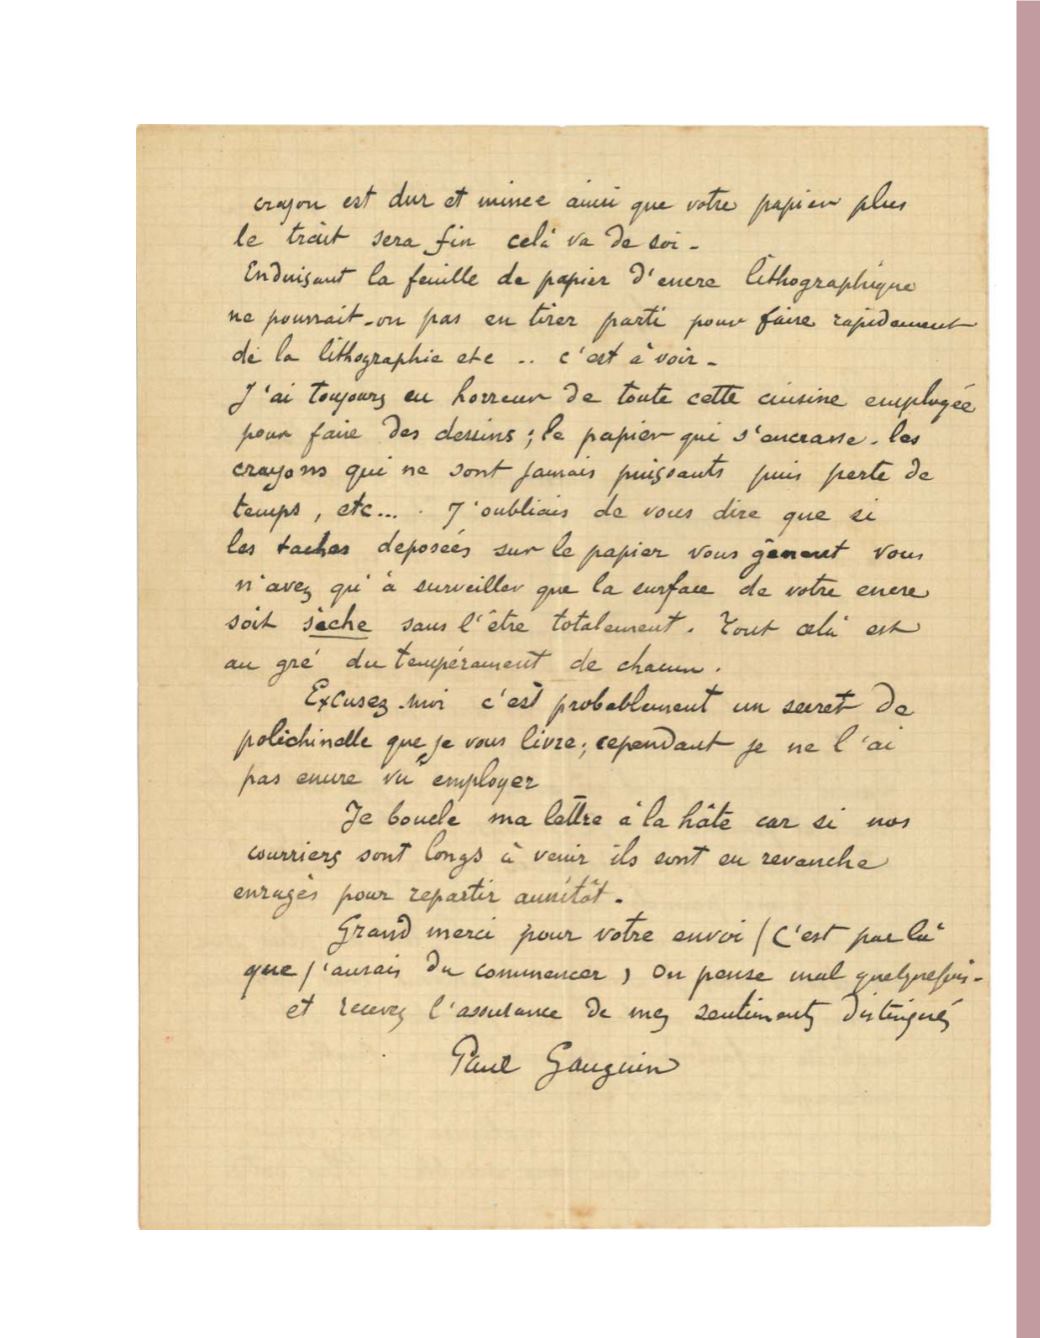 crayon est dur et mince ainsi que votre papier plus
le trait sera fin celà va de soi -
Enduisant la feuille de papier d'encre lithographique
ne pourrait-on pas en tirer parti pour faire rapidement
de la lithographie etc .. c'est à voir -
J'ai toujours eu horreur de toute cette cuisine employée
pour faire des dessins ; le papier qui s'encrasse - les
crayons qui ne sont jamais puissants puis perte de
temps, etc... . J'oubliais de vous dire que si
les taches deposées sur le papier vous gênent vous
n'avez qu'à surveiller que la surface de votre encre
soit sèche sans l'être totalement. Tout celà est
au gré du tempérament de chacun.
Excusez-moi c'est probablement un secret de
polichinelle que je vous livre ; cependant je ne l'ai
pas encore vu employer
Je boucle ma lettre à la hâte car si nos
courriers sont longs à venir ils sont en revanche
enragés pour repartir aussitôt.
Grand merci pour votre envoi (C'est par là
que j'aurais du commencer) On pense mal quelquefois -
et recevez l'assurance de mes sentiments distingués
Paul Gauguin